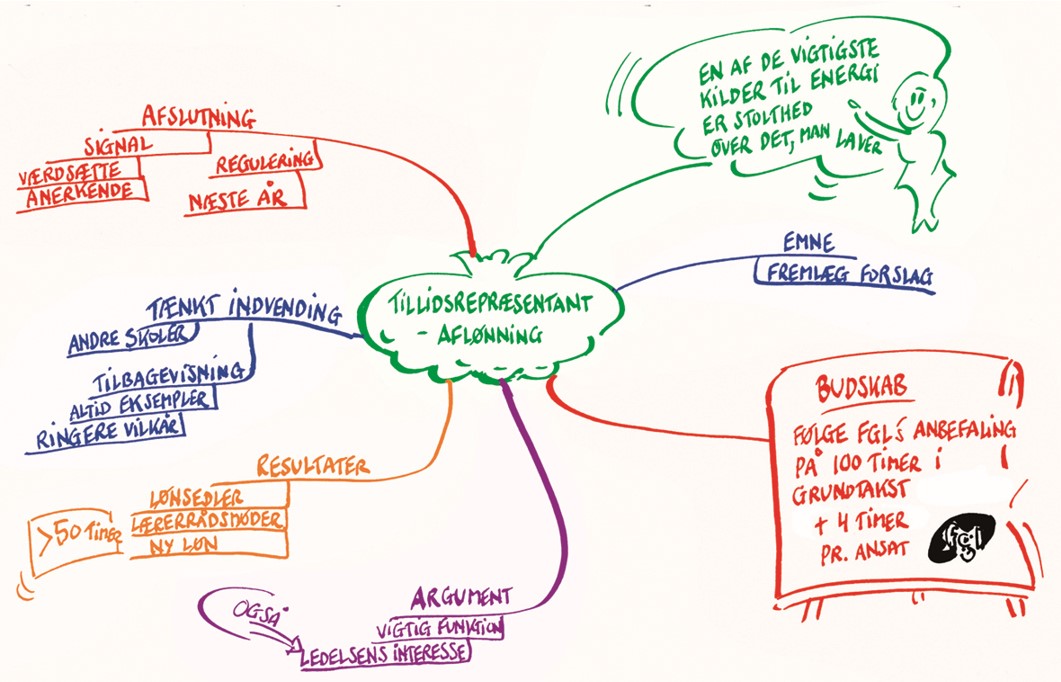 TILLIDSREPRÆSENTANT
- AFLØNNING
EN AF DE VIGTIGSTE
KILDER TIL ENERGI
ER STOLTHED
OVER DET, MAN LAVER
EMNE
FREMLÆG FORSLAG
BUDSKAB
FØLGE FGL'S ANBEFALING
PÅ 100 TIMER i
GRUNDTAKST
+ 4 TIMER
PR. ANSAT
fgl
ARGUMENT
VIGTIG FUNKTION
LEDELSENS INTERESSE
OGSÅ
RESULTATER
LØNSEDLER
LÆRERRÅDSMØDER
NY LØN
>50 Timer
TÆNKT INDVENDING
ANDRE SKOLER
TILBAGEVISNING
ALTID EKSEMPLER
RINGERE VILKÅR
AFSLUTNING
SIGNAL
VÆRDSÆTTE
ANERKENDE
REGULERING
NÆSTE ÅR